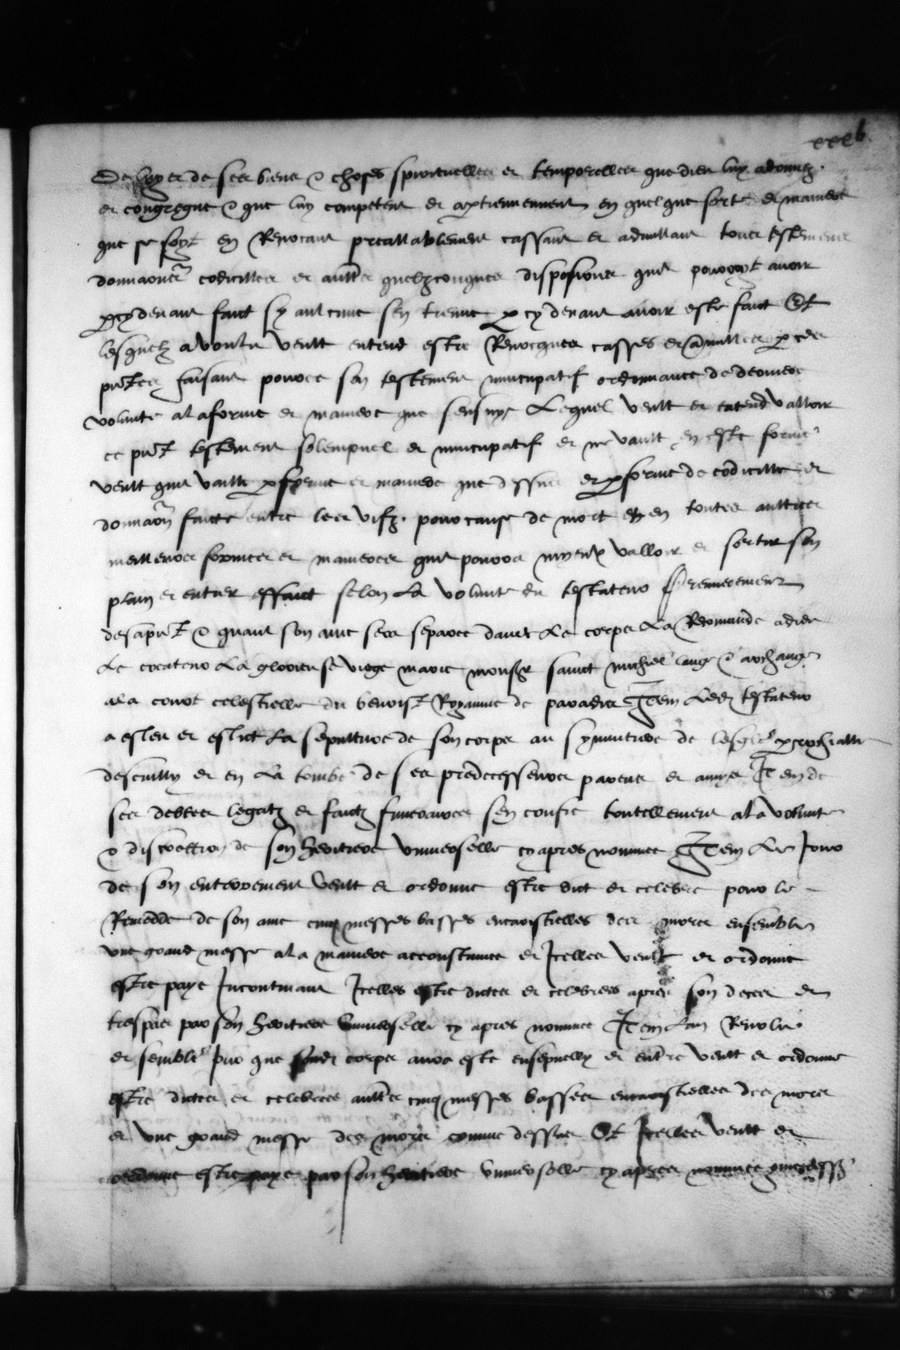 xxxv
De luy et de ses biens & choses spirituelles et temporelles que dieu luy a donnez
et congregue & que luy competent et appertiennent en quelque sorte et maniere
que se soyt En Revocant preallablement cassant et adnullant tous testemens
donnations codicilles et aultres quelzconques disposicions que pouvoyt avoir
par cy devant faict sy aulcune sen treuve par cy devant avoir este faict Et
lesquelz a voulu veult entend estre Revocquees casses et adnulles par ces
presentes faisant pource son testement nuncupatif ordonnance de derniere
volunte a la forme et maniere que sensuyt Lequel veult et entend valloir
ce present testement solempnel et nuncupatif et ne vault en este forme
veult que vaille par forme et maniere que dessus et par forme de codicille et
donnation faicte entre les vifz pour cause de mort et en toutes aultres
meilleures formes et manieres que pourra myeulx valloir et sortir son
plain et entier effaict selon la volunte du testateur Premierement
desapresent & quant son ame sera separee davec le corps la Recomande a dieu
le createur la glorieuse vierge marie monsr sainct michiel lange & archange
a la court celestielle du benoist Royaume de paradis Item ledit testateur
a esleu et eslict la sepulture de son corps au symintiere de lesglise parrochialle
descuilly et en la tombe de ses predecesseurs parens et amys Item de
ses debtes legatz et faictz funeraires sen confie toutellement a la volunte
& discrection de son heritiere universelle cy apres nommee Item le Jour
de son enterrement veult et ordonne estre dict et celebre pour le
Remedde de son ame cinq messes basses encaristelles des mors ensemble
une grand messe a la maniere accoustumee et Icelles veult et ordonne
estre paye Incontinant Icelles estre dictes et celebrees apres son deces et
trespas par son heritiere universelle cy apres nommee Item lan Revolu
et semble jour que sondit corps aura este ensepvelly et entere veult et ordonne
estre dictes et celebrees aultres cinq messes basses encaristielles des mors
et une grand messe des mors comme dessus Et Icelles veult et
ordonne estre paye par son heritiere universelle cy apres nommee que dessus